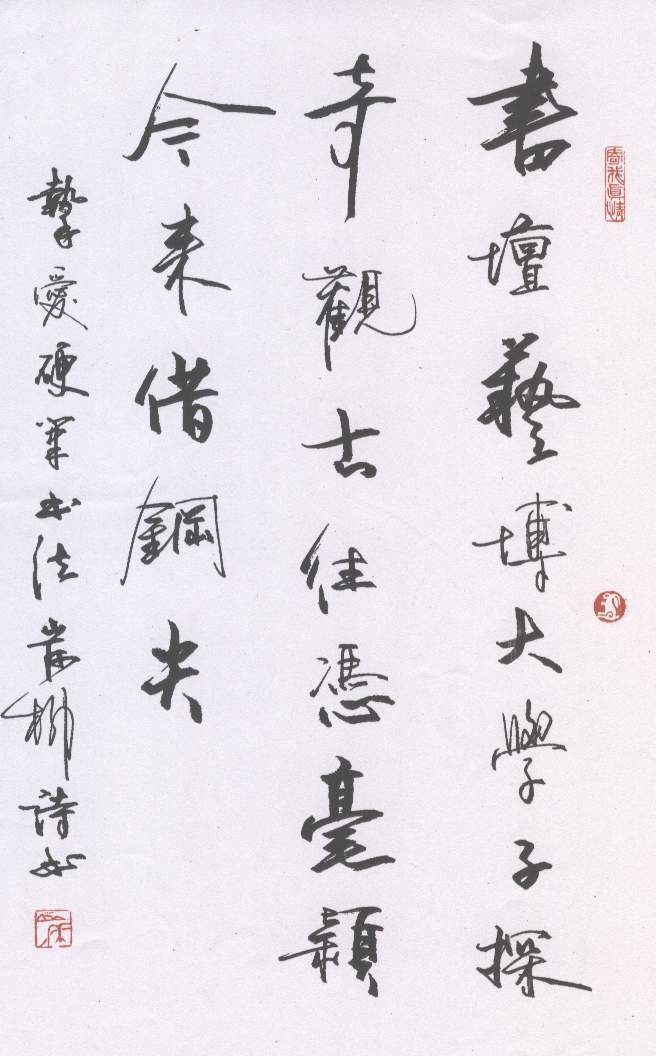 書壇藝博大學子探
奇觀古往憑毫穎
今來借鋼尖
摯愛硬筆书法崇柳詩书